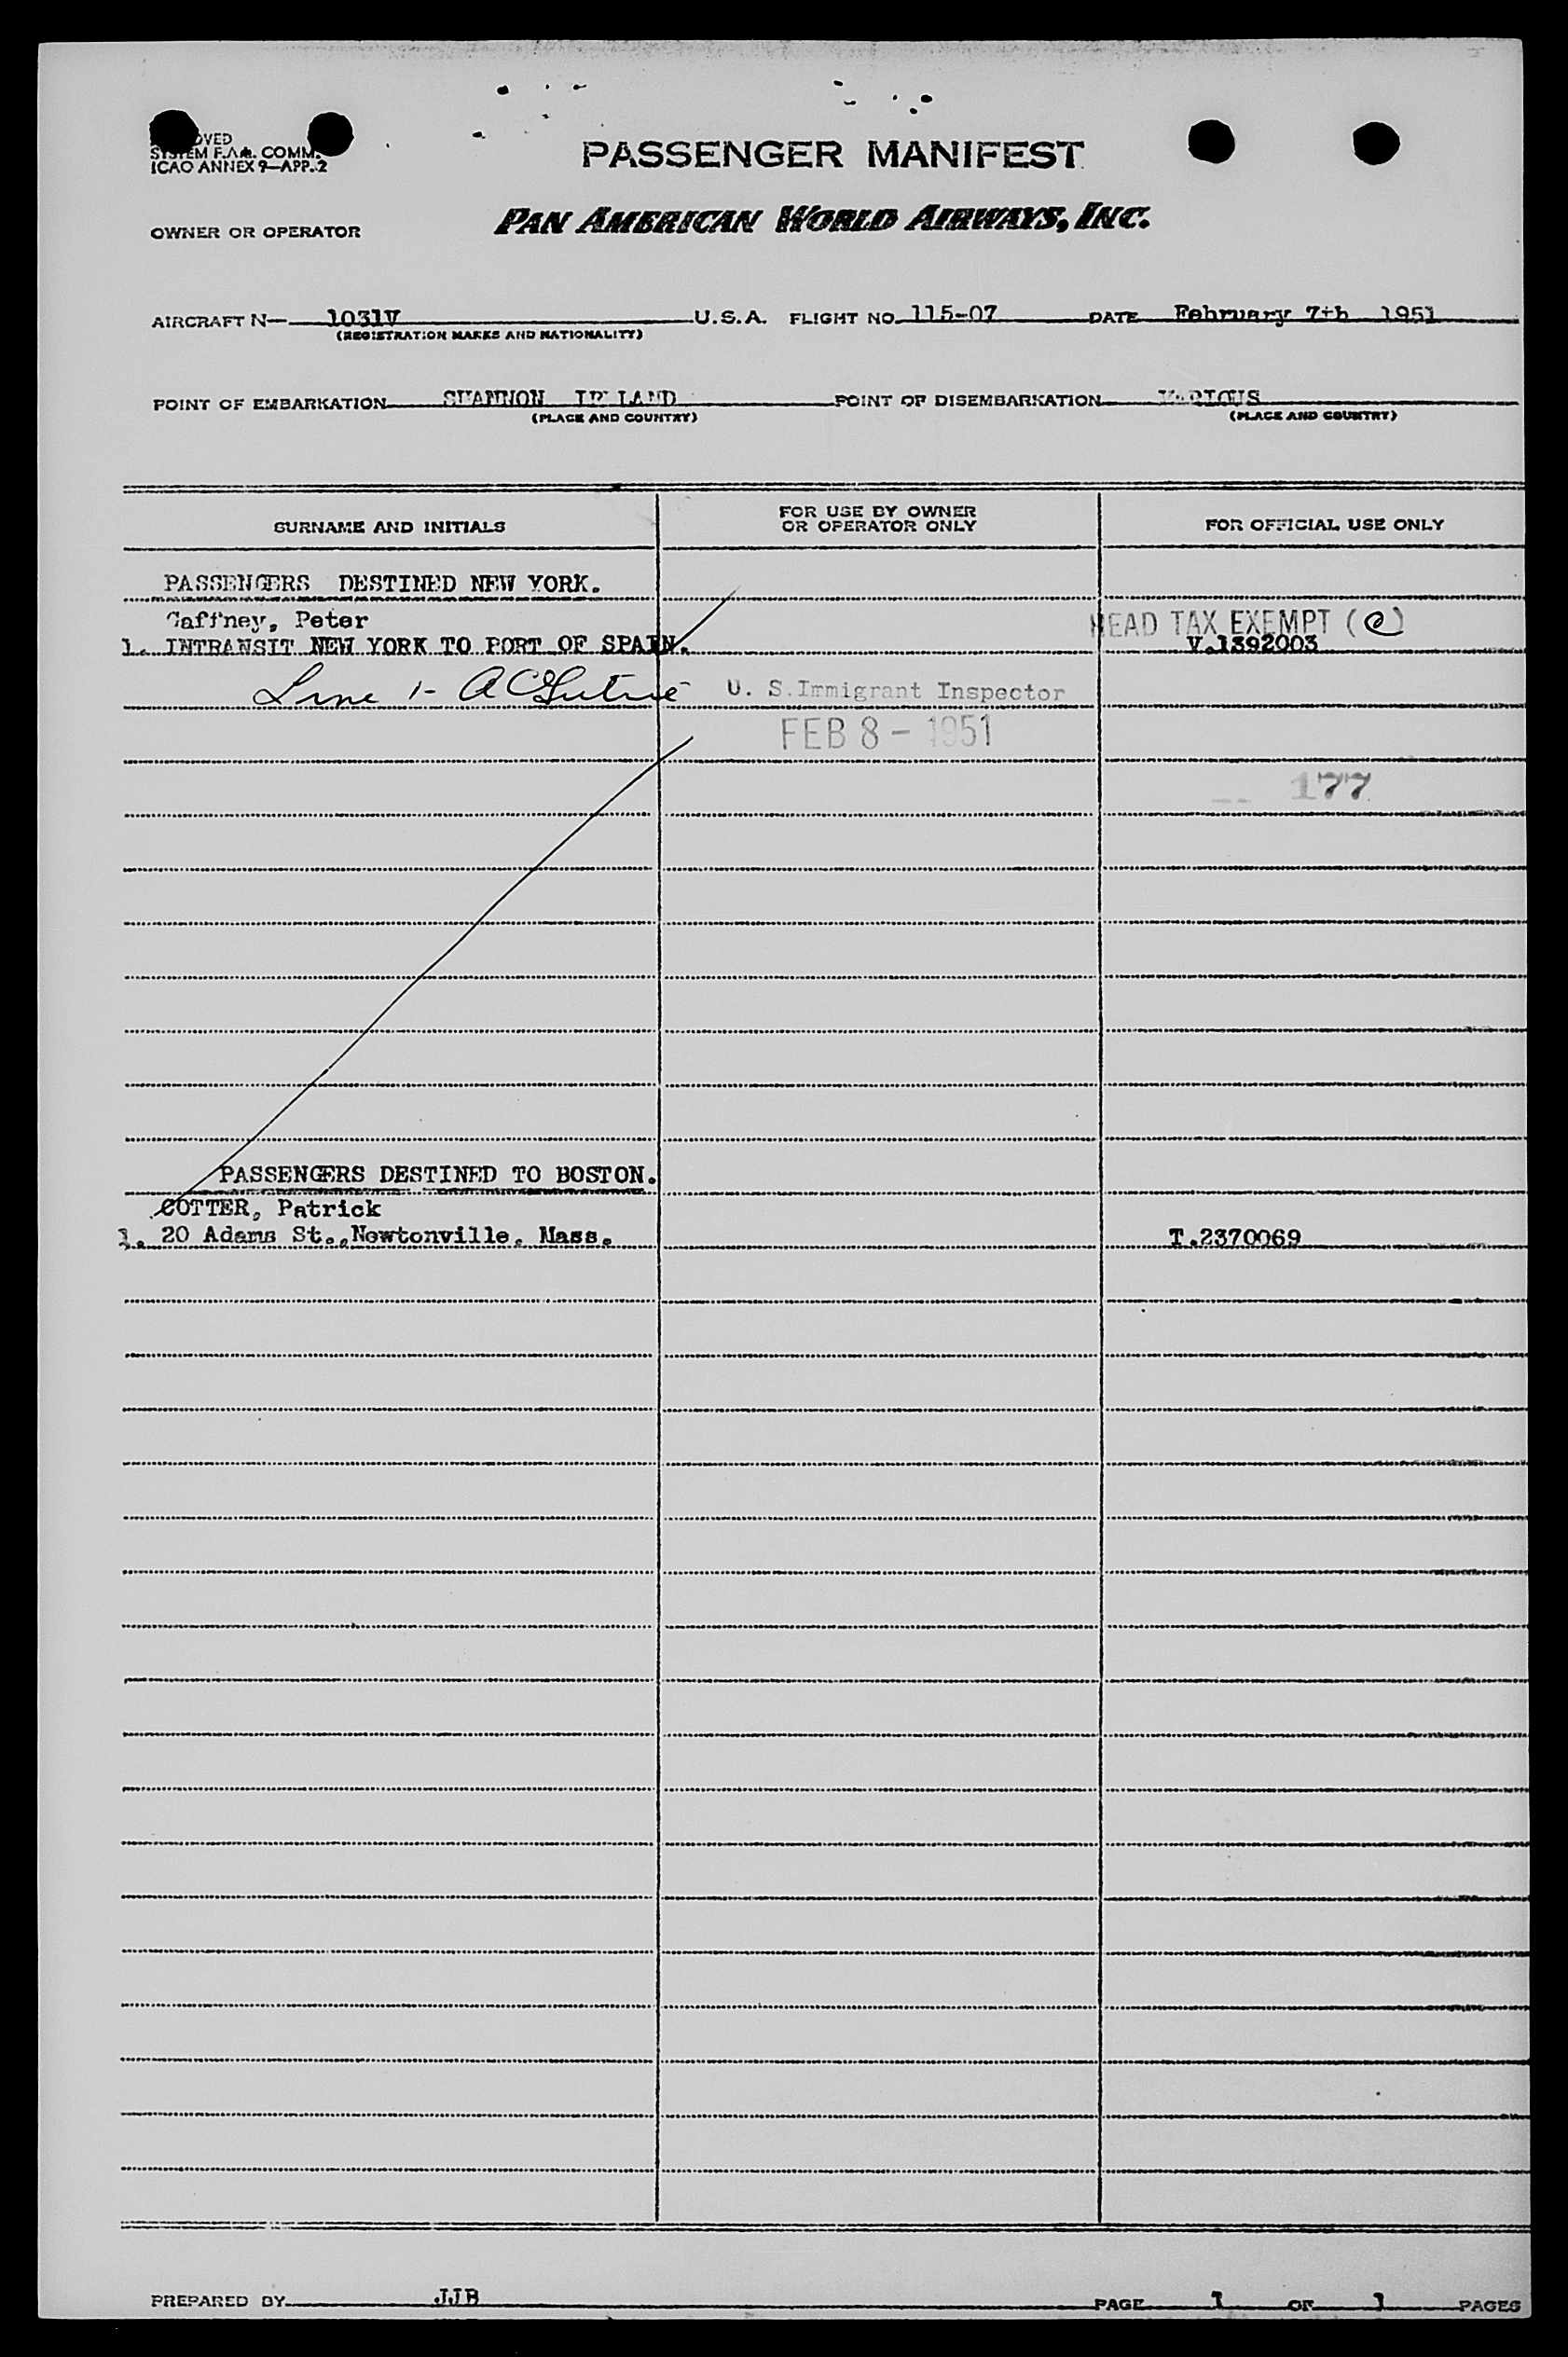 PASSENGER MANIFEST
SYSTEM F.A.L. COMM.
ICAO ANNEX 9—APP. 2
OWNER OR OPERATOR PAN AMERICAN WORLD AIRWAYS, INC.
AIRCRAFT N— 1031V U.S.A. FLIGHT NO. 115-07 DATE February 7th 1951
(REGISTRATION MARKS AND NATIONALITY)
POINT OF EMBARKATION SHANNON IRELAND POINT OF DISEMBARKATION VARIOUS
(PLACE AND COUNTRY) (PLACE AND COUNTRY)
SURNAME AND INITIALS
FOR USE BY OWNER
OR OPERATOR ONLY
FOR OFFICIAL USE ONLY
PASSENGERS DESTINED NEW YORK.
Gaffney, Peter HEAD TAX EXEMPT (C)
1. INTRANSIT NEW YORK TO PORT OF SPAIN. V.1392003
Line 1- U. S. Immigrant Inspector
FEB 8 - 1951
177
PASSENGERS DESTINED TO BOSTON.
COTTER, Patrick
1. 20 Adams St., Newtonville, Mass. T.2370069
PREPARED BY JJB PAGE 1 OF 1 PAGES